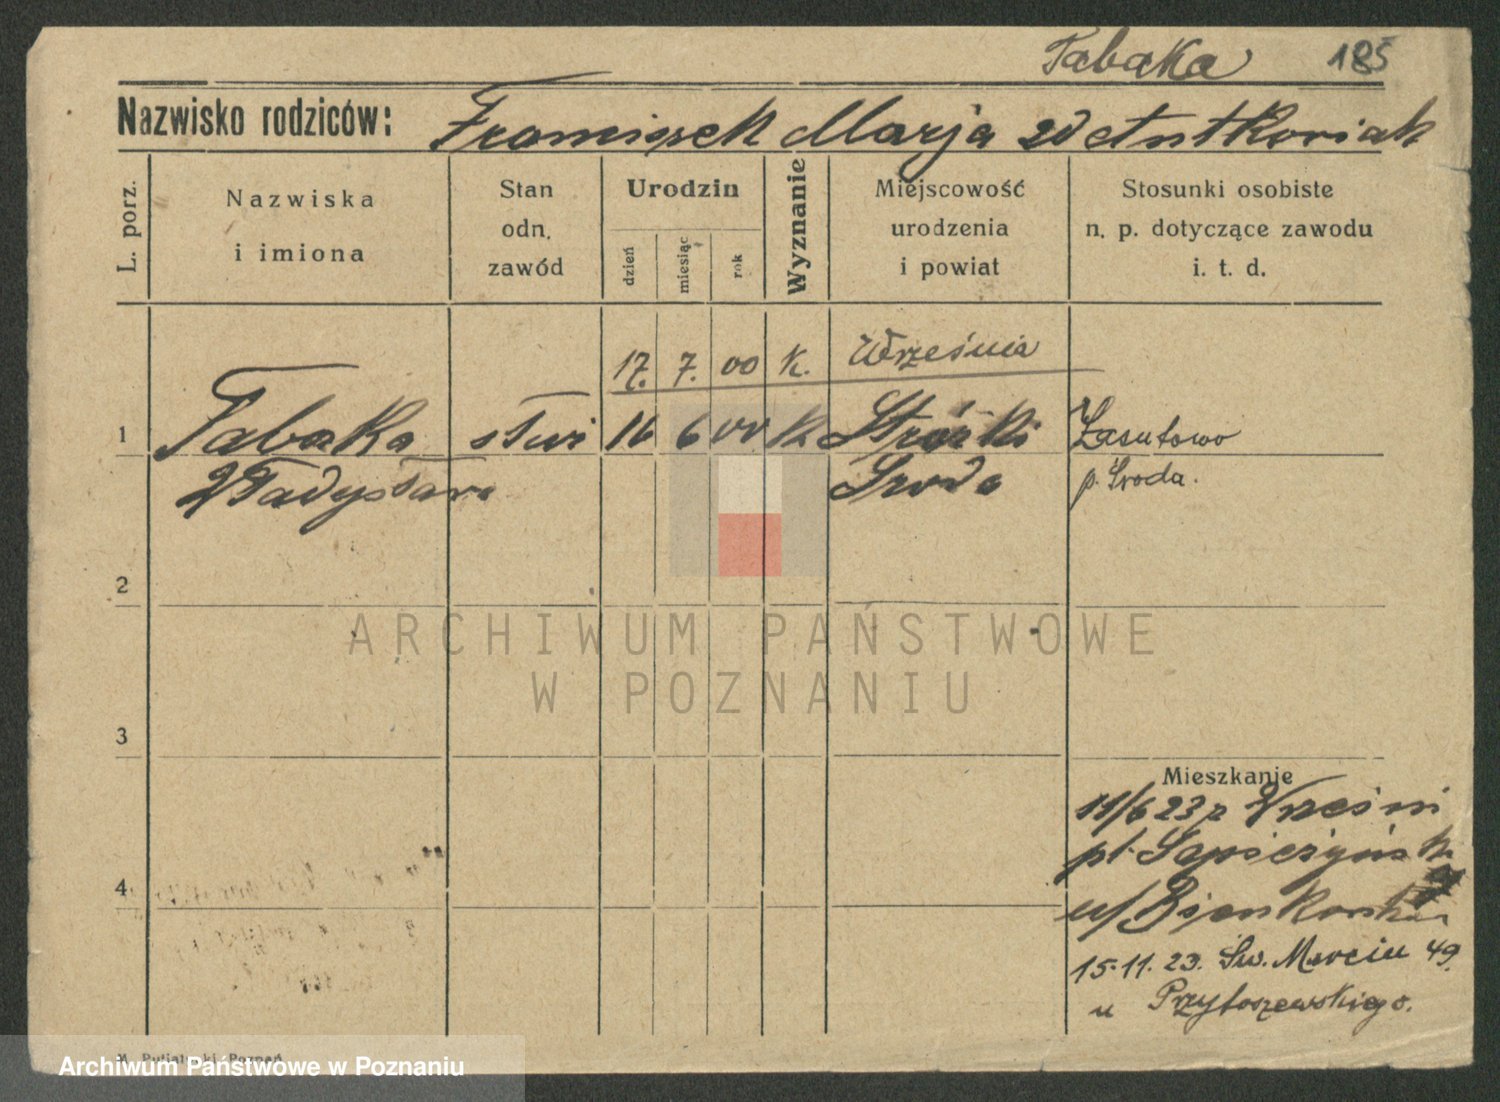 Tabaka 185
Nazwisko rodziców: Franciszek Marja zd Antkoviak
L. porz.
Nazwiska
i imiona
Stan
odn.
zawód
Urodzin
dzień
miesiąc
rok
Wyznanie
Miejscowość
urodzenia
i powiat
Stosunki osobiste
n. p. dotyczące zawodu
i. t. d.
17. 7. 00 K. Września
1 Tabaka 16 6 00 K Stroiki Zasutowo
Władysława Sroda p. Sroda.
2
3
Mieszkanie
11/6 23 z Wrześni
pl.
4
u/
15.11.23. Św. Marcin 49.
u Przytoszewskiego.
Poznań
ARCHIWUM PAŃSTWOWE
W POZNANIU
Archiwum Państwowe w Poznaniu